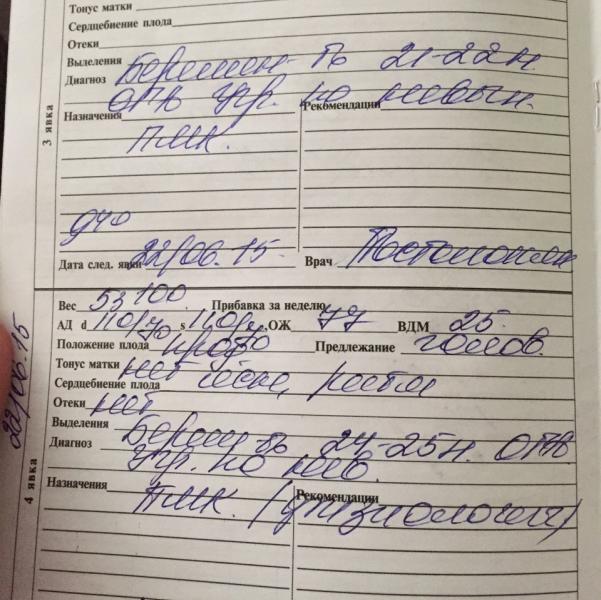 Тонус матки
Сердцебиение плода
Отеки
Выделения
Диагноз Беременн-ть 21-22н.
ОПА угр. по невын.
Назначения Рекомендации
ПМК.
3 явка
Дата след. явки 22/06.15 Врач
22/06.15
Вес 53100 Прибавка за неделю
АД d 110/70 s 110/70, ОЖ 77 ВДМ 25
Положение плода прод Предлежание голов.
Тонус матки нет
Сердцебиение плода ясн, ритм
Отеки нет
Выделения
Диагноз Берем-ть 24-25н. ОПА
угр. по нев.
4 явка
Назначения Рекомендации
ПМК.